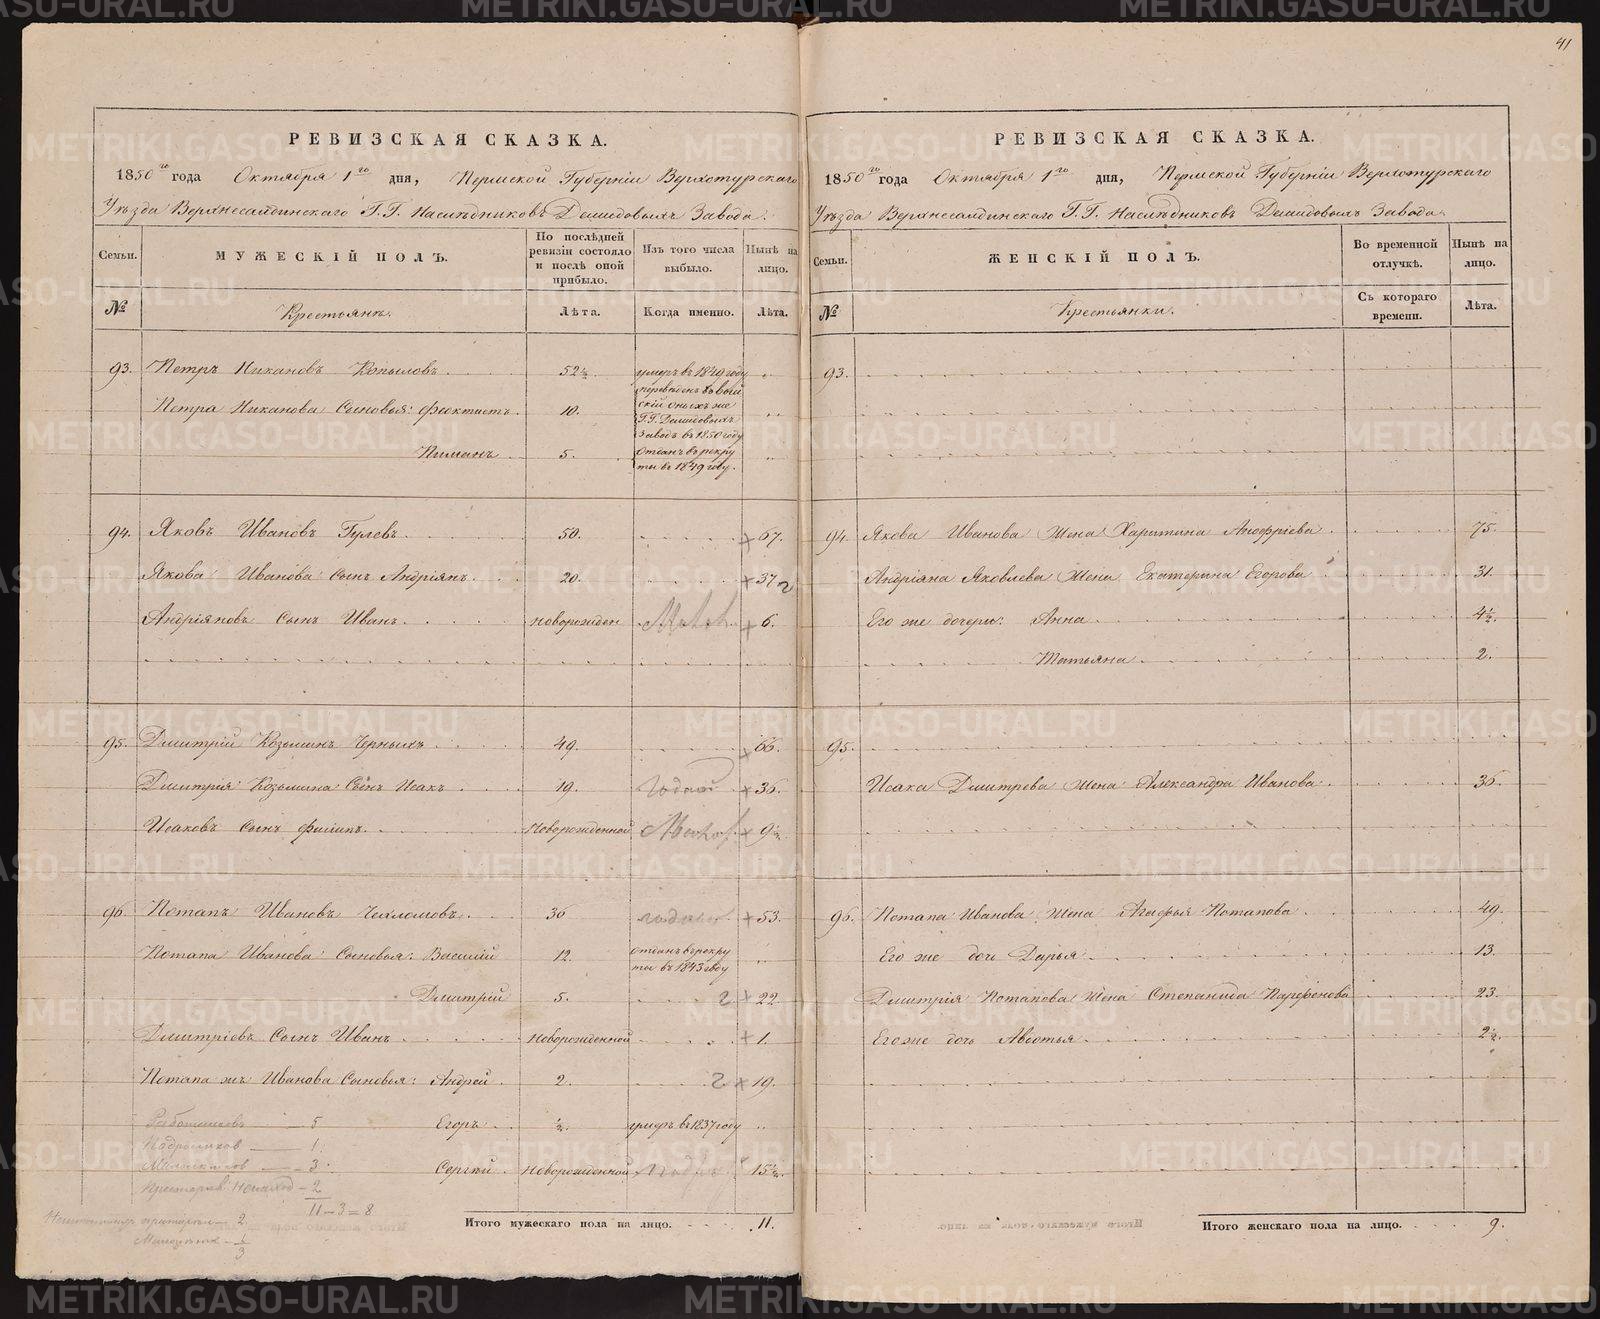 41
РЕВИЗСКАЯ СКАЗКА.
1850го года Октября 1го дня, Пермской Губерніи Верхотурскаго
Уѣзда Верхнесалдинскаго Г.Г. Наслѣдниковъ Демидовыхъ Завода.
Семьи.
МУЖЕСКІЙ ПОЛЪ.
По послѣдней ревизіи состояло и послѣ оной прибыло.
Изъ того числа выбыло.
Нынѣ на лицо.
№
Крестьянъ.
Лѣта.
Когда именно.
Лѣта.
93. Петръ Никановъ Копыловъ. 52½ умеръ въ 1849 году
Петра Никанова Сыновья: Феоктистъ. 10. переведенъ въ
скій оныхъ же
Г.Г. Демидовыхъ
Заводъ въ 1850 году
Пиманъ 5. отданъ въ рекру
ты въ 1849 году.
94. Яковъ Ивановъ Гулевъ 50. 67.
Якова Иванова Сынъ Андріянъ. 20. 37 2
Андріяновъ Сынъ Иванъ. новорожден 6.
95. Дмитрій Козьминъ Черныхъ 49. 66.
Дмитрія Козьмина Сынъ Исакъ. 19. годной 36.
Исаковъ Сынъ Филипъ. Новорожденной 9½
96. Потапъ Ивановъ 36 годной 53.
Потапа Иванова Сыновья: Василій 12. отданъ въ рекру
ты въ 1843 году
Дмитрій 5. 2 22.
Дмитріевъ Сынъ Иванъ Новорожденной 1.
Потапа жъ Иванова Сыновья: Андрей. 2. 2 19.
Егоръ ½ умеръ въ 1837 году
Сергѣй Новорожденной 15½
Работниковъ — 5
Подростков — 1
— 3
— 2
11 – 3 = 8
— 2
— 1
3
Итого мужескаго пола на лицо. 11.
РЕВИЗСКАЯ СКАЗКА.
1850го года Октября 1го дня, Пермской Губерніи Верхотурскаго
Уѣзда Верхнесалдинскаго Г.Г. Наслѣдниковъ Демидовыхъ Завода.
Семьи.
ЖЕНСКІЙ ПОЛЪ.
Во временной отлучкѣ.
Нынѣ на лицо.
№
Крестьянки.
Съ котораго времени.
Лѣта.
93.
94. Якова Иванова Жена Харитина Анофріева 75.
Андріяна Яковлева Жена Екатерина Егорова 31.
Его же дочери: Анна 4½.
Татьяна 2.
95.
Исака Дмитрева Жена Александра Иванова 36.
96. Потапа Иванова Жена Агафья Потапова 49.
Его же дочь Дарья 13.
Дмитрія Потапова Жена Степанида Парфенова 23.
Его же дочь Авдотья 2½.
Итого женскаго пола на лицо. 9.
METRIKI.GASO-URAL.RU